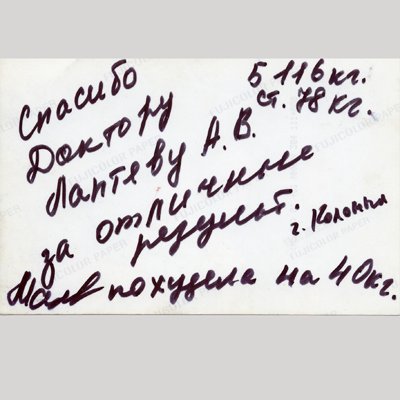 Спасибо
Доктору
Лаптеву А.В.
за отличные
результ.
Б 116 кг.
ст. 78 кг.
г. Коломна
похудела на 40 кг.
FUJICOLOR PAPER